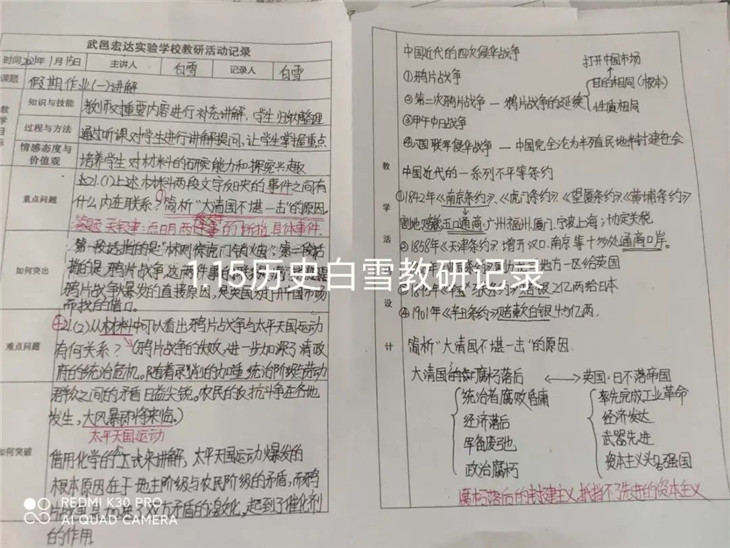 武邑宏达实验学校教研活动记录
时间 2021年1月15日 主讲人 白雪 记录人 白雪
课题 假期作业(一)讲解
知识与技能 教师对重要内容进行补充讲解,学生归纳整理
过程与方法 通过听课对学生进行讲解提问,让学生掌握重点
情感态度与
价值观 培养学生对材料的研究能力和探索兴趣
重点问题 21.(1)上述材料两段文字反映的事件之间有
什么内在联系?简析"大清国不堪一击"的原因
具体事件
如何突出 第一段话指的是"林则徐虎门销烟";第二段话
指的是鸦片战争,这两件
鸦片战争爆发的直接原因,是英国为打开中国市场
寻找的借口。
难点问题 21(2)从材料中可以看出鸦片战争与太平天国运动
有何关系?(鸦片战争的失败,进一步加深了清政
府的统治危机。随着剥削的加重,统治阶级与劳动
群众之间的矛盾日益尖锐。农民的反抗斗争在各地
发生,大风暴即将来临。)
太平天国运动
如何突破 借用化学的公式来讲解,太平天国运动爆发的
根本原因在于地主阶级与农民阶级的矛盾,而鸦片
战争 加深了双方矛盾的激化,起到了催化剂
的作用
教学活动设计
中国近代的四次侵华战争
打开中国市场
①鸦片战争
目的相同(根本)
②第二次鸦片战争 — 鸦片战争的延续
性质相同
③甲午中日战争
八国联军侵华战争 — 中国完全沦为半殖民地半封建社会
中国近代的一系列不平等条约
①1842年《南京条约》、《虎门条约》《望厦条约》《黄埔条约》
割地 五口通商,广州福州厦门、宁波上海;协定关税
②1858年《天津条约》:增开汉口、南京等十处通商口岸。
地方一区给英国
白银2亿两给日本
④1901年《辛丑条约》赔款白银4.5亿两.
简析"大清国不堪一击"的原因.
大清国 腐朽落后 ⟷ 英国·日不落帝国
统治者腐败昏庸 率先完成工业革命
经济落后 经济发达
军备废弛 武器先进
政治腐朽 资本主义强国
腐朽落后的封建主义,抵挡不了先进的资本主义
1.15历史白雪教研记录
REDMI K30 PRO
AI QUAD CAMERA